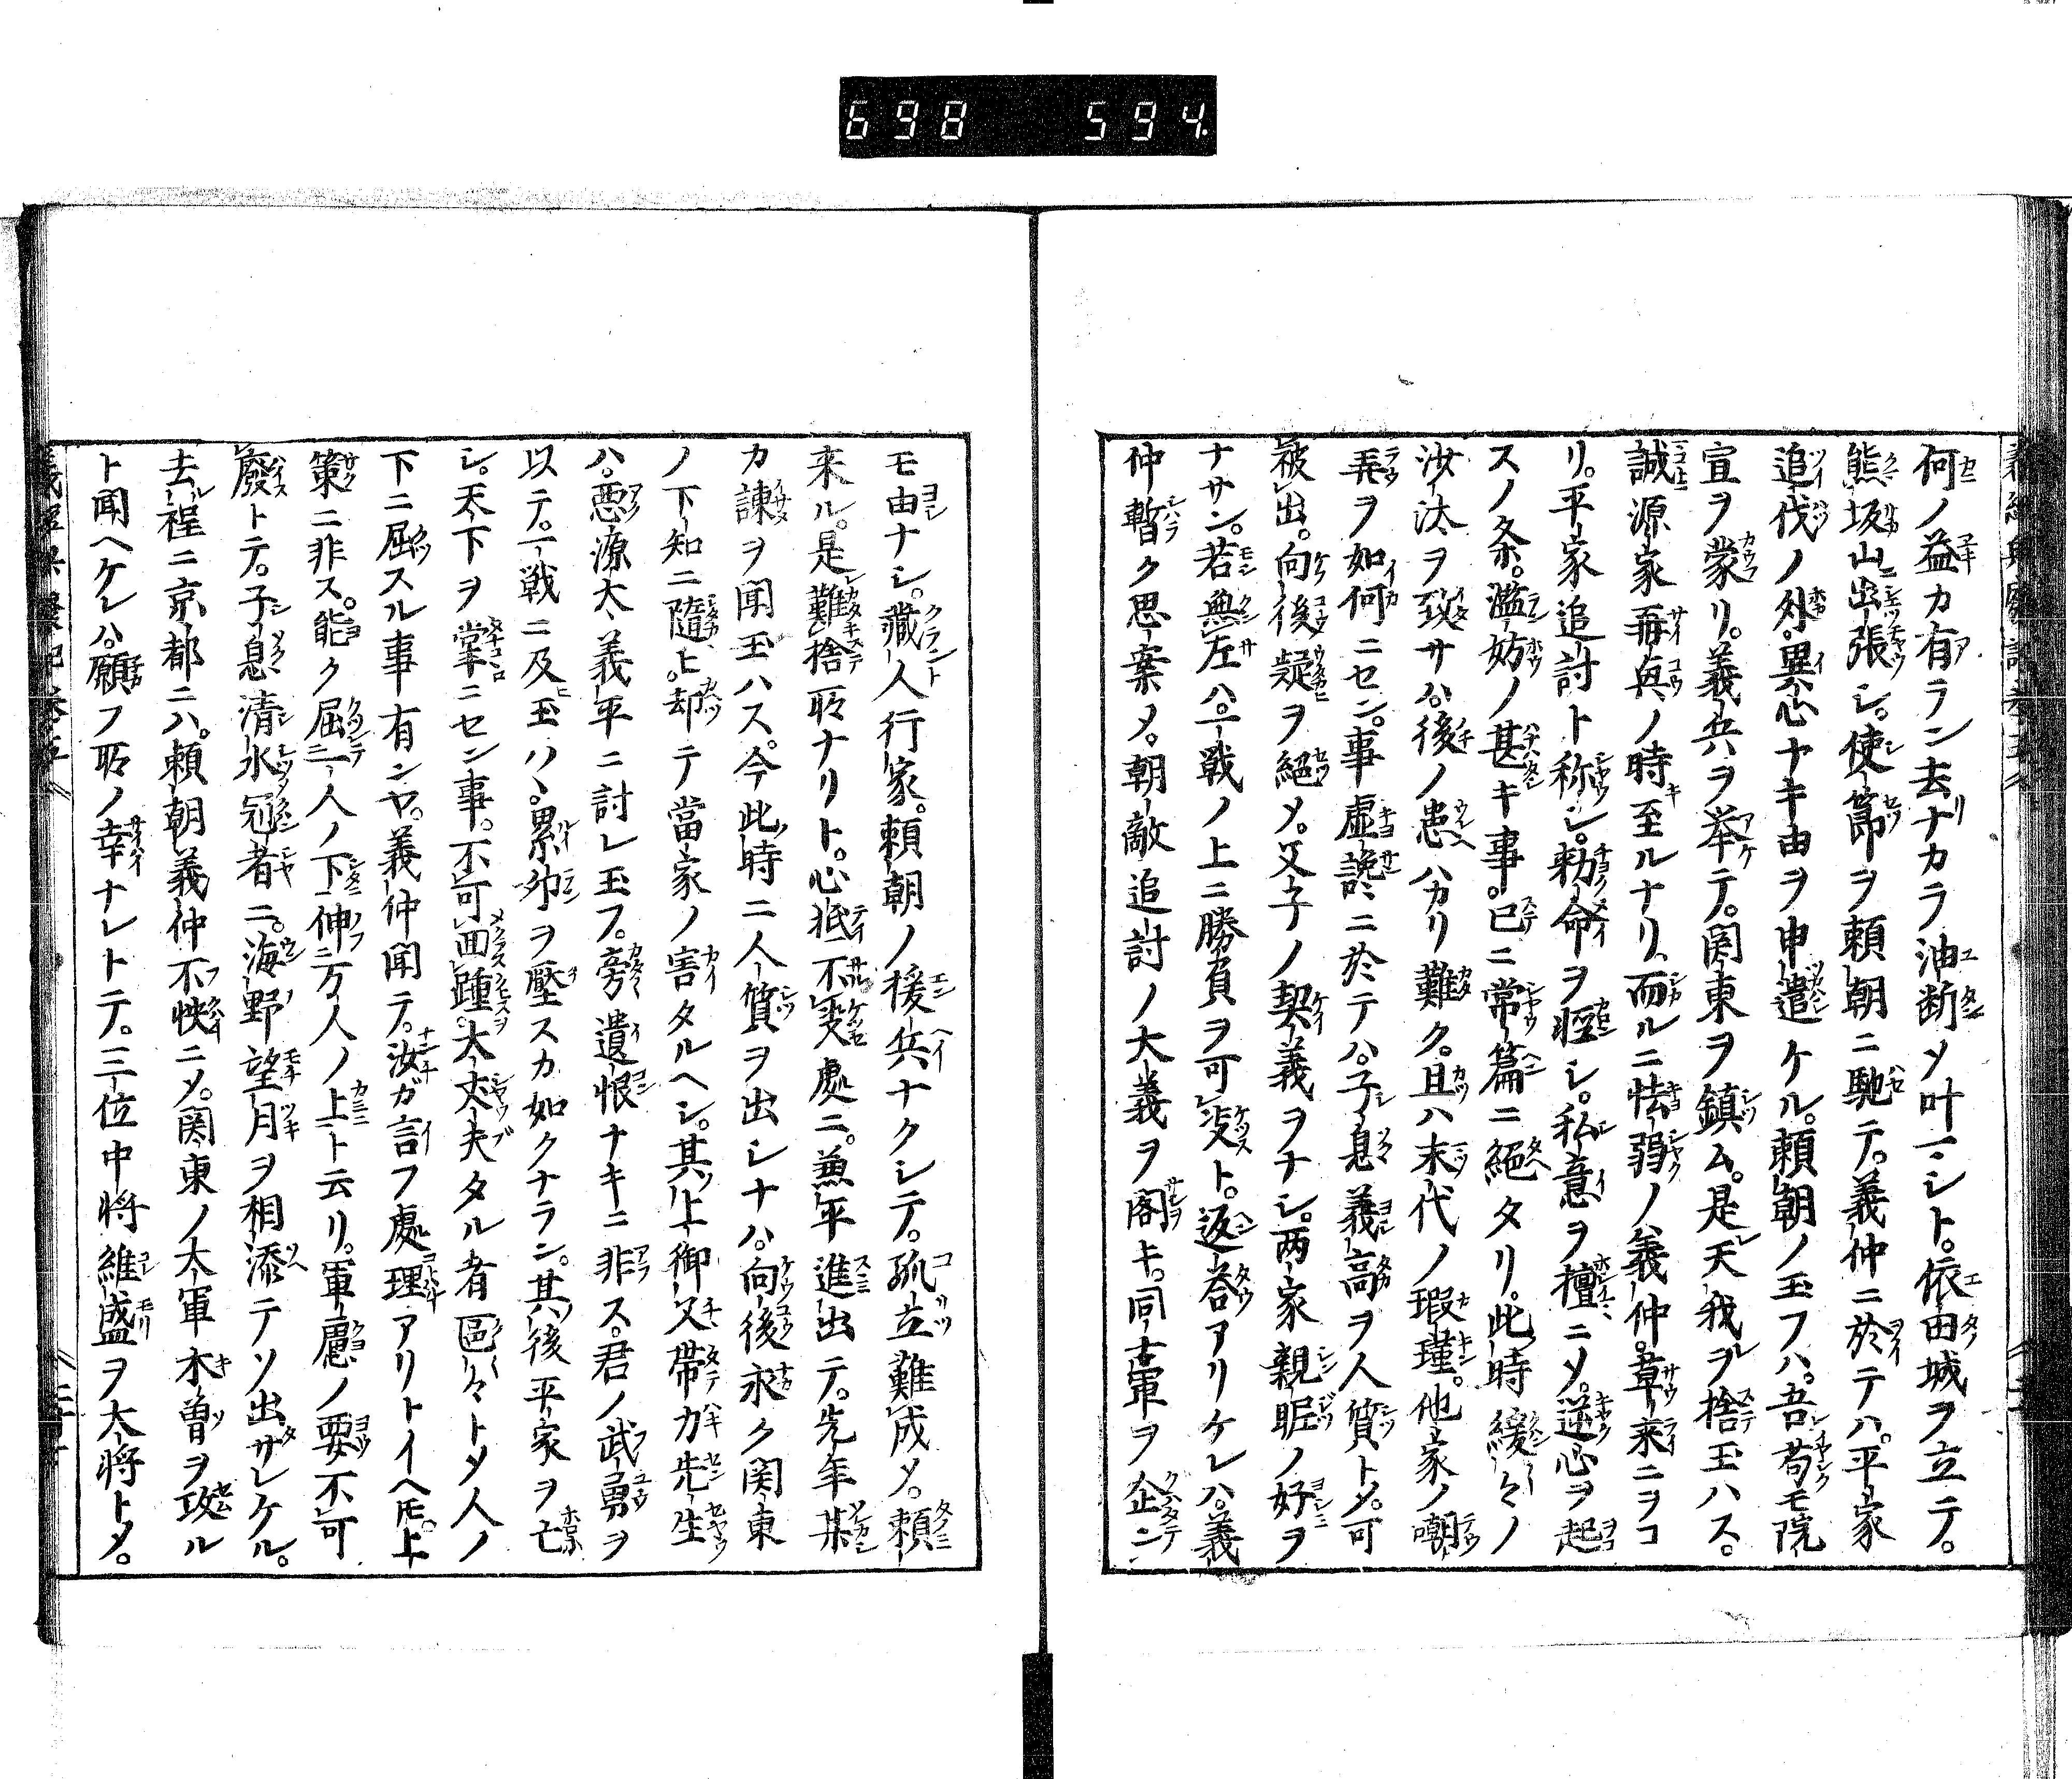 698 594
何ノ益カ有ラン去ナカラ油断メ叶マシト。依田城ヲ立テ。
熊坂山ニ出張シ。使節ヲ頼朝ニ馳テ。義仲ニ於テハ。平家
追伐ノ外。異心ナキ由ヲ申遣ケル。頼朝ノ玉フハ。吾苟モ院
宣ヲ蒙リ。義兵ヲ挙テ。関東ヲ鎮ム。是天我ヲ捨玉ハス。
誠源家再興ノ時至ルナリ。而ルニ怯弱ノ義仲。草来ニヲコ
リ。平家追討ト称シ。勅命ヲ軽シ。私意ヲ擅ニメ。逆心ヲ起
スノ条。濫妨ノ甚キ事。已ニ常篇ニ絶タリ。此時緩々ノ
沙汰ヲ致サハ。後ノ患ハカリ難ク。且ハ末代ノ瑕瑾。他家ノ嘲
弄ヲ如何ニセン。事虚讒ニ於テハ。子息義高ヲ人質トメ。可
被出。向後疑ヲ絶メ。父子ノ契義ヲナシ。両家親昵ノ好ヲ
ナサン。若無左ハ。一戦ノ上ニ勝負ヲ可決ト。返答アリケレハ。義
仲暫ク思案メ。朝敵追討ノ大義ヲ閣キ。同士軍ヲ企ニ
モ由ナシ。蔵人行家。頼朝ノ援兵ナクシテ。孤立難成メ。頼
来ル。是難捨所ナリト。心抵不決處ニ。兼平進出テ。先年某
カ諫ヲ聞玉ハス。今此時ニ人質ヲ出シナハ。向後永ク関東
ノ下知ニ随ヒ。却テ當家ノ害タルヘシ。其上御父帯刀先生
ハ。悪源太義平ニ討レ玉フ。旁遺恨ナキニ非ス。君ノ武勇ヲ
以テ。一戦ニ及玉ハヽ。累卵ヲ壓スカ如クナラン。其後平家ヲ亡
シ。天下ヲ掌ニセン事。不可回踵。大丈夫タル者區々トメ人ノ
下ニ屈スル事有ンヤ。義仲聞テ。汝ガ言フ處理アリトイヘ𪜈。上
策ニ非ス。能ク屈一人ノ下伸万人ノ上ト云リ。軍慮ノ要不可
廢トテ。子息清水冠者ニ。海野望月ヲ相添テソ出サレケル。
去程ニ京都ニハ。頼朝義仲不快ニメ。関東ノ大軍木曽ヲ攻ル
ト聞ヘケレハ。願フ所ノ幸ナレトテ。三位中将維盛ヲ大将トメ。